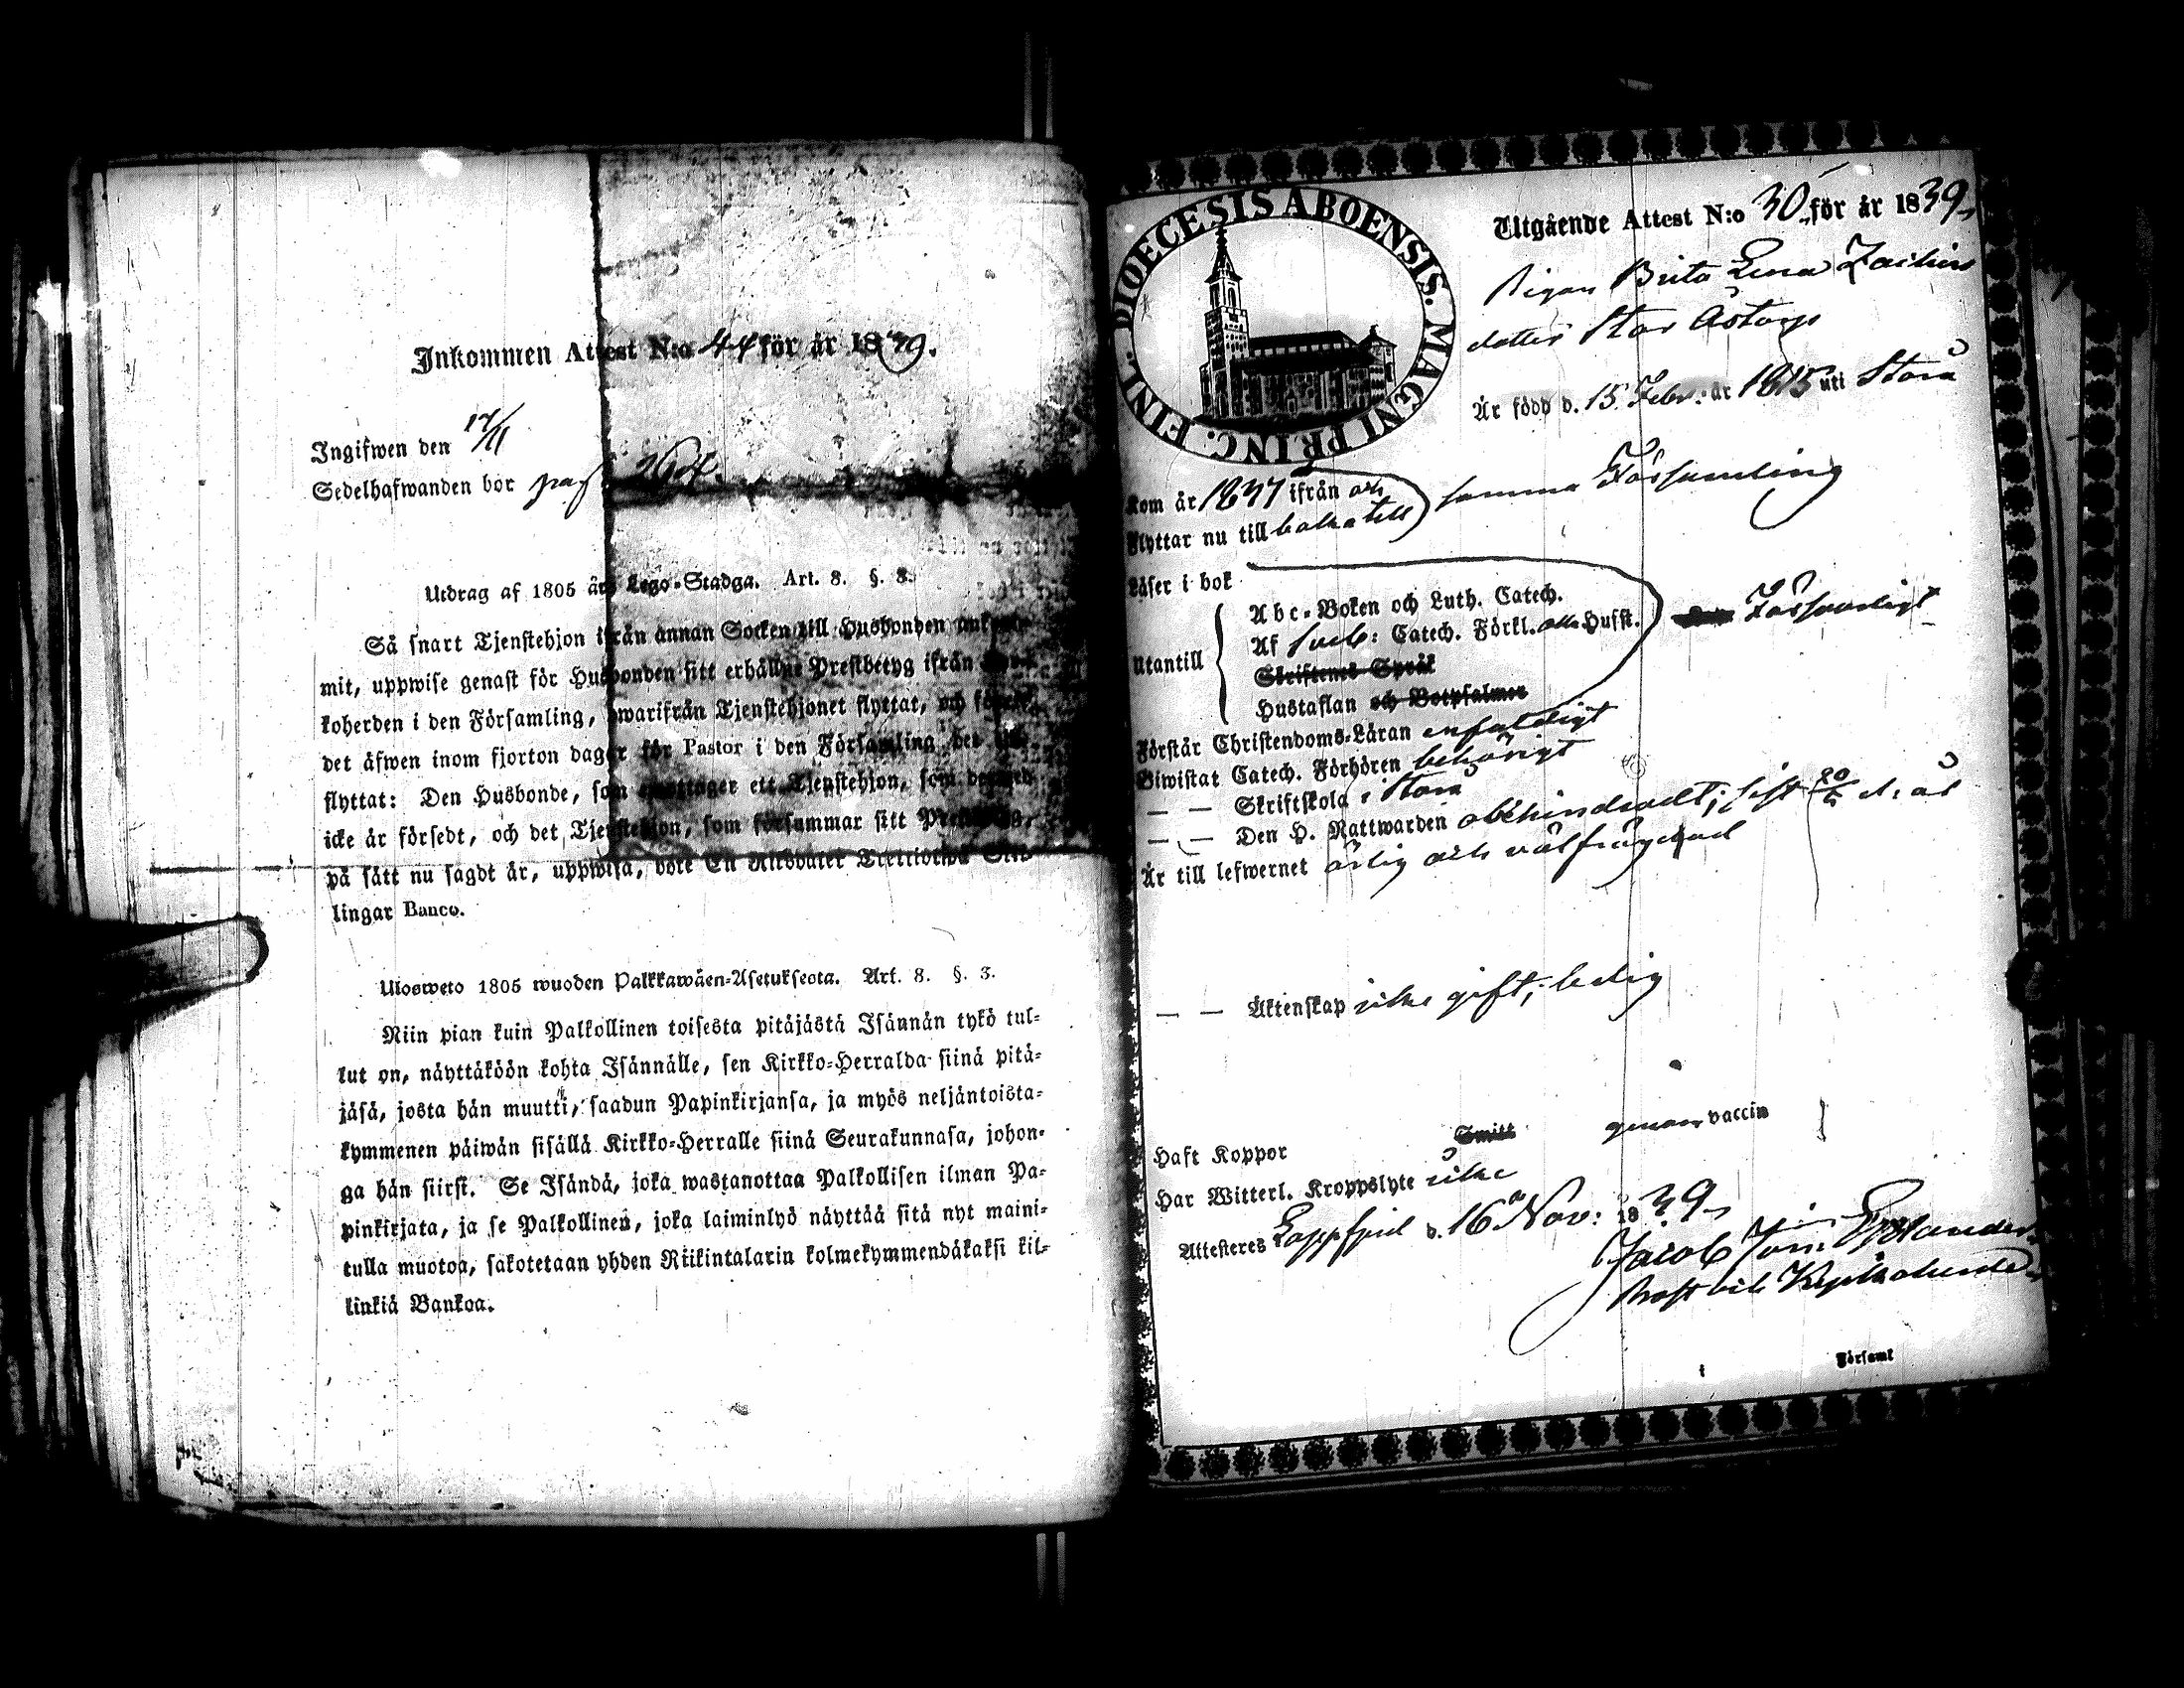 Inkommen Attest N:o 44 för år 1839.
Ingifwen den 17/11
Sedelhafwanden bor pag. 264.
Utdrag af 1805 års Lego-Stadga. Art. 8. §. 3.
Så snart Tjenstehjon ifrån annan Socken till Husbonden
mit, uppwise genast för Husbonden sitt erhållne Prestbetyg ifrån
koherden i den Församling, hwarifrån Tjenstehjonet flyttat, och
det äfwen inom fjorton dagar för Pastor i den Församling det
flyttat: Den Husbonde, som emottager ett Tjenstehjon, som dermed
icke är försedt, och det Tjenstehjon, som försummar sitt
på sätt nu sagdt är, uppwisa, böte En Riksdaler
lingar Banco.
Ulosweto 1805 wuoden Palkkawäen-Asetuksesta. Art. 8. §. 3.
Niin pian kuin Palkollinen toisesta pitäjästä Isännän tykö tul-
lut on, näyttäköön kohta Isännälle, sen Kirkko-Herralda siinä pitä-
jäsä, josta hän muutti, saadun Papinkirjansa, ja myös neljäntoista-
kymmenen päiwän sisällä Kirkko-Herralle siinä Seurakunnasa, johon-
ga hän siirst. Se Isändä, joka wastanottaa Palkollisen ilman Pa-
pinkirjata, ja se Palkollinen, joka laiminlyö näyttää sitä nyt maini-
tulla muotoa, sakotetaan yhden Riikintalarin kolmekymmendäkaksi kil-
linkiä Bankoa.
DIOECESIS ABOENSIS. MAGNI PRINC. FINL.
Utgående Attest N:o 30 för år 1839
Pigan Brita Lena Zachris
dotter Stor Åstorp
Är född d. 15 Febr: år 1815 uti Storå
Kom år 1837 ifrån och
Flyttar nu till baka till samma Församling
Läser i bok
Utantill
Abc-Boken och Luth. Catech.
Af Sveb: Catech. Förkl. och Husst. Försvarligt
Skriftenes Språk
Hustaflan och Botpsalmer
Förstår Christendoms-Läran enfaldigt
Biwistat Catech. Förhören behörigt
— — Skriftskola i Storå
— — Den H. Nattwarden obehindradt; sist d. år
Är till lefwernet ärlig och välfrägdad
— — Äktenskap icke gift; ledig
Haft Koppor Smitt genom vaccin
Har Witterl. Kroppslyte icke
Attesteres Lappfjerd d. 16 Nov: 1839
Jacob Joh:
Prost och Kyrkoherde
i Församl